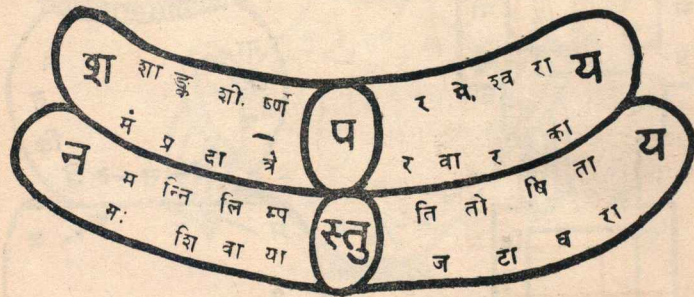 श शा ङ्क शी. र्ष्णे प र मे. श्व रा य
मं प्र दा त्रे र वा र का
न म न्नि लि म्प स्तु ति तो षि ता य
म: शि वा या ज टा ध रा